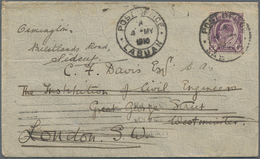 POST OFFICE
A
4 MY
1910
LABUAN
POST OFFICE
Osmington,
Road,
Sidcup
C. F. Davis Esqre
The Institution of Civil Engineers
Great George Street
Westminster
London S.W.